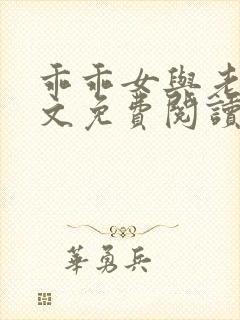 乖乖女與老
文免費閱讀
華勇兵